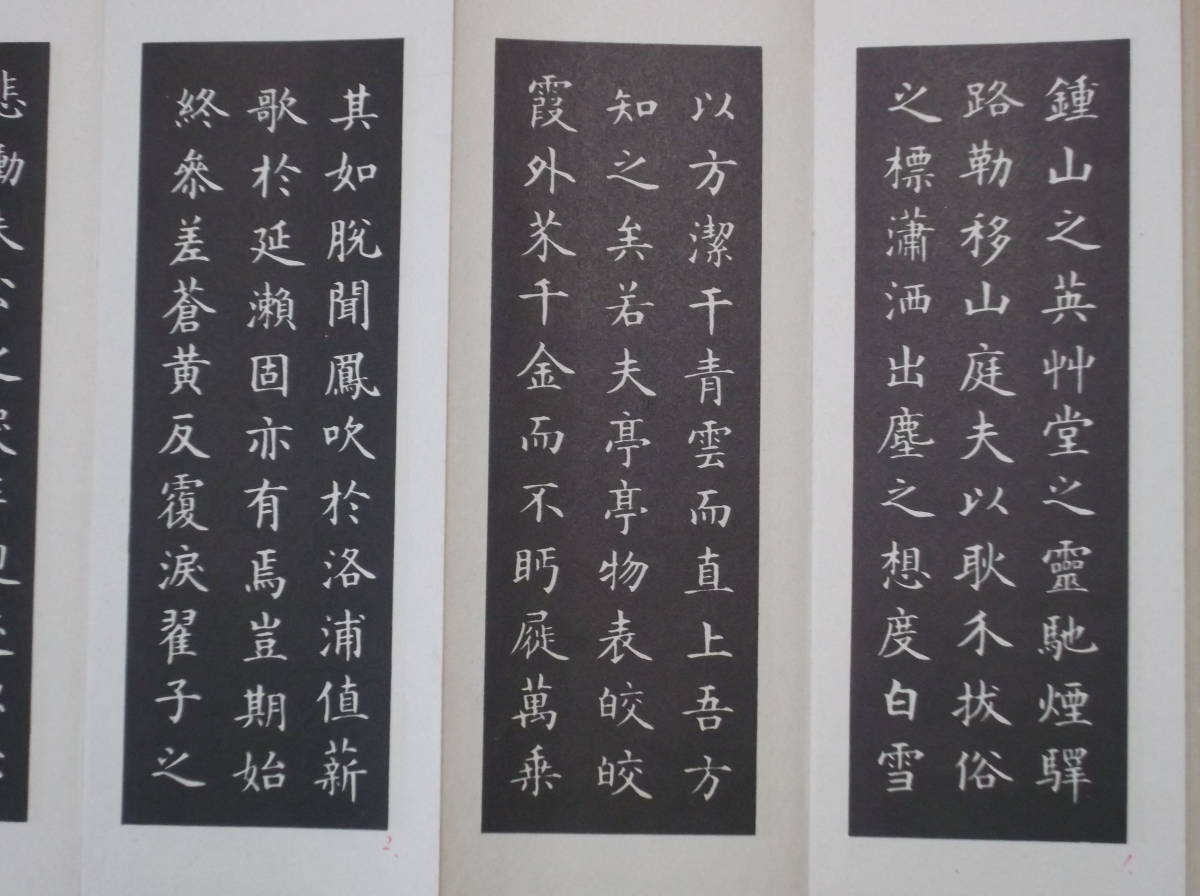 鍾山之英艸堂之靈馳煙驛
路勒移山庭夫以耿介拔俗
之標瀟洒出塵之想度白雪
以方潔干青雲而直上吾方
知之矣若夫亭亭物表皎皎
霞外芥千金而不眄屣萬乗
其如脫聞鳳吹於洛浦值薪
歌於延瀨固亦有焉豈期始
終參差蒼黃反覆淚翟子之
2
1